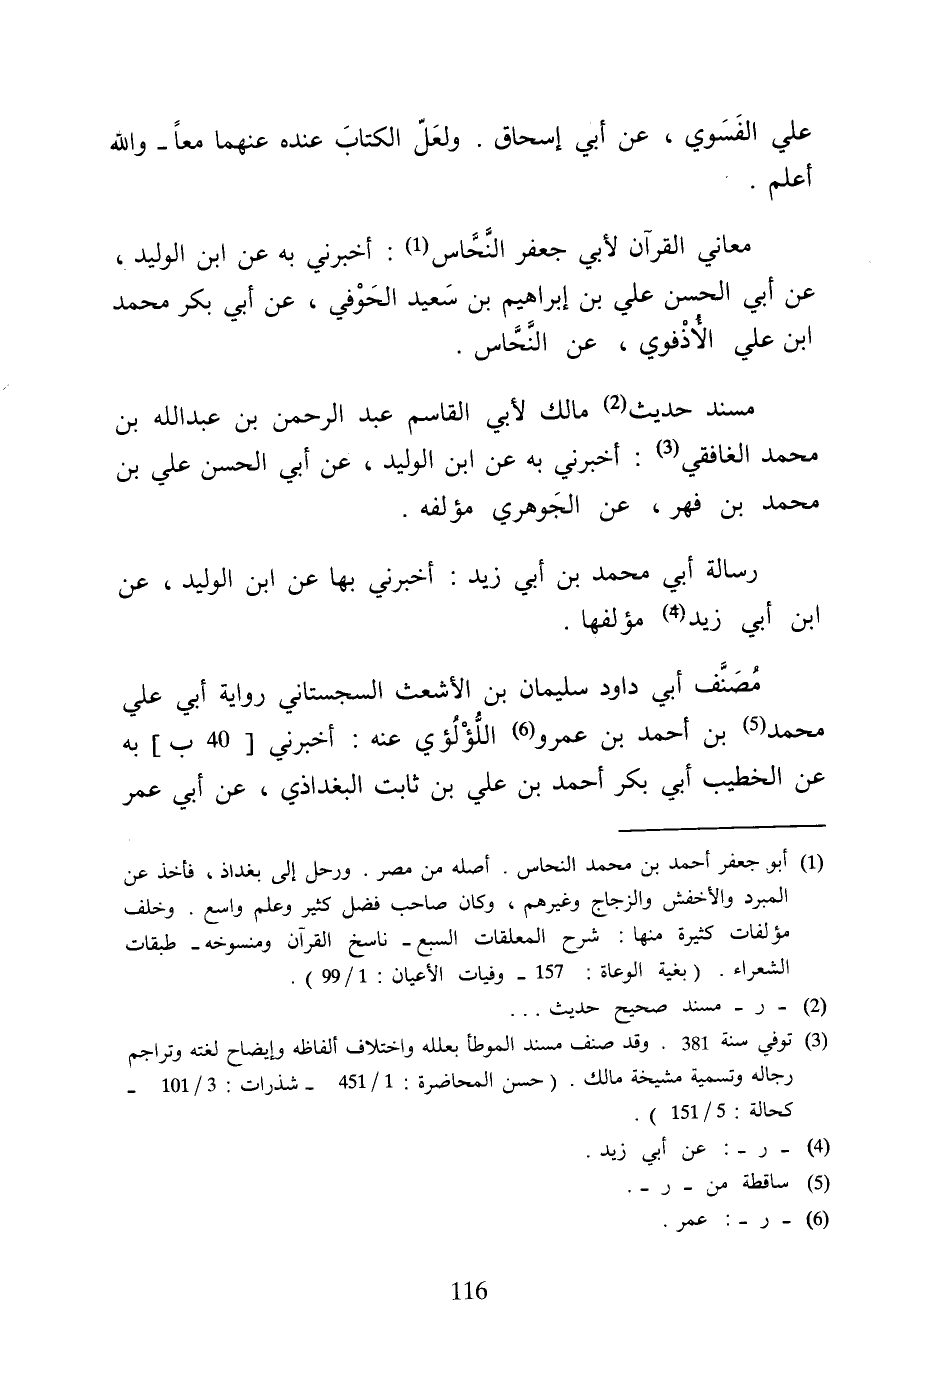 علي الفَسَوي ، عن أبي إسحاق . ولعَلّ الكتابَ عنده عنهما معاً ـ والله
أعلم .
معاني القرآن لأبي جعفر النَّحَّاس(1) : أخبرني به عن ابن الوليد ،
عن أبي الحسن علي بن إبراهيم بن سَعيد الحَوْفي ، عن أبي بكر محمد
ابن علي الأُذْفوي ، عن النَّحَّاس .
مسند حديث(2) مالك لأبي القاسم عبد الرحمن بن عبدالله بن
محمد الغافقي(3) : أخبرني به عن ابن الوليد ، عن أبي الحسن علي بن
محمد بن فهر ، عن الجَوهري مؤلفه .
رسالة أبي محمد بن أبي زيد : أخبرني بها عن ابن الوليد ، عن
ابن أبي زيد(4) مؤلفها .
مُصَنَّف أبي داود سليمان بن الأشعث السجستاني رواية أبي علي
محمد(5) بن أحمد بن عمرو(6) اللُّؤْلُؤي عنه : أخبرني [ 40 ب ] به
عن الخطيب أبي بكر أحمد بن علي بن ثابت البغداذي ، عن أبي عمر
(1) أبو جعفر أحمد بن محمد النحاس . أصله من مصر . ورحل إلى بغداذ ، فأخذ عن
المبرد والأخفش والزجاج وغيرهم ، وكان صاحب فضل كثير وعلم واسع . وخلف
مؤلفات كثيرة منها : شرح المعلقات السبع ـ ناسخ القرآن ومنسوخه ـ طبقات
الشعراء . ( بغية الوعاة : 157 ـ وفيات الأعيان : 1/ 99 ) .
(2) ـ ر ـ مسند صحيح حديث ...
(3) توفي سنة 381 . وقد صنف مسند الموطأ بعلله واختلاف ألفاظه وإيضاح لغته وتراجم
رجاله وتسمية مشيخة مالك . ( حسن المحاضرة : 1/ 451 ـ شذرات : 3/ 101 ـ
كحالة : 5/ 151 ) .
(4) ـ ر ـ : عن أبي زيد .
(5) ساقطة من ـ ر ـ .
(6) ـ ر ـ : عمر .
116